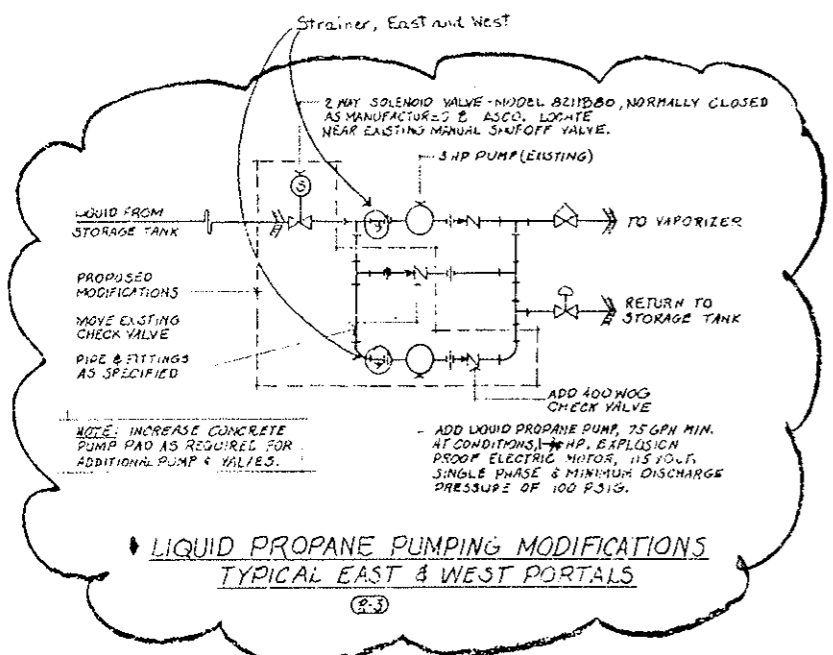 Strainer, East and West
2 WAY SOLENOID VALVE - MODEL 8211B80, NORMALLY CLOSED
AS MANUFACTURED BY ASCO. LOCATE
NEAR EXISTING MANUAL SHUTOFF VALVE.
HP PUMP (EXISTING)
S
LIQUID FROM
STORAGE TANK
TO VAPORIZER
PROPOSED
MODIFICATIONS
RETURN TO
STORAGE TANK
MOVE EXISTING
CHECK VALVE
PIPE & FITTINGS
AS SPECIFIED
ADD 400 WOG
CHECK VALVE
NOTE: INCREASE CONCRETE
PUMP PAD AS REQUIRED FOR
ADDITIONAL PUMP & VALVES.
ADD LIQUID PROPANE PUMP, 75 GPH MIN.
AT CONDITIONS, HP. EXPLOSION
PROOF ELECTRIC MOTOR, 115 VOLT,
SINGLE PHASE & MINIMUM DISCHARGE
PRESSURE OF 100 PSIG.
LIQUID PROPANE PUMPING MODIFICATIONS
TYPICAL EAST & WEST PORTALS